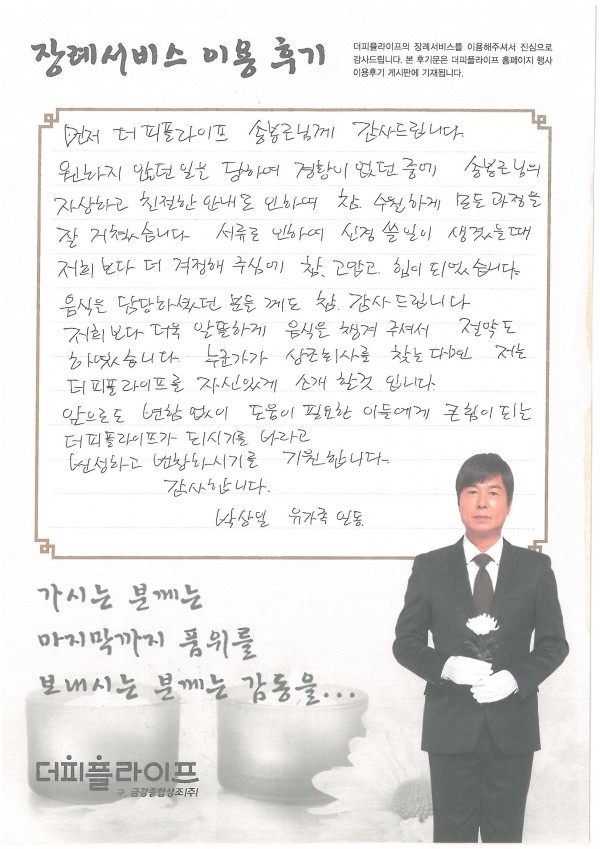 장례서비스 이용 후기
더피플라이프의 장례서비스를 이용해주셔서 진심으로
감사드립니다. 본 후기문은 더피플라이프 홈페이지 행사
이용후기 게시판에 기재됩니다.
먼저 더피플라이프 송봉근님께 감사드립니다.
원하지 않던 일을 당하여 경황이 없던 중에 송봉근님의
자상하고 친절한 안내로 인하여 참 수월하게 모든 과정을
잘 거쳤습니다. 서류로 인하여 신경 쓸 일이 생겼을때
저희보다 더 걱정해 주심에 참, 고맙고, 힘이 되었습니다.
음식을 담당하셨던 분들께도 참, 감사드립니다
저희보다 더욱 알뜰하게 음식을 챙겨 주셔서 절약도
하였습니다. 누군가가 상조회사를 찾는다면 저는
더피플라이프를 자신있게 소개 할것 입니다.
앞으로도 변함 없이 도움이 필요한 이들에게 큰힘이 되는
더피플라이프가 되시기를 바라고
번성하고 번창하시기를 기원합니다.
감사합니다.
유가족 일동
가시는 분께는
마지막까지 품위를
보내시는 분께는 감동을...
더피플라이프
구. 금강종합상조(주)